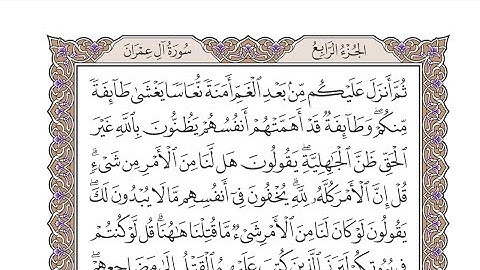 الجُزْءُ الرَّابِعُ
سُورَةُ آلِ عِمْرَانَ
ثُمَّ أَنزَلَ عَلَيْكُم مِّنۢ بَعْدِ ٱلْغَمِّ أَمَنَةً نُّعَاسًا يَغْشَىٰ طَآئِفَةً
مِّنكُمْ ۖ وَطَآئِفَةٌ قَدْ أَهَمَّتْهُمْ أَنفُسُهُمْ يَظُنُّونَ بِٱللَّهِ غَيْرَ
ٱلْحَقِّ ظَنَّ ٱلْجَٰهِلِيَّةِ ۖ يَقُولُونَ هَل لَّنَا مِنَ ٱلْأَمْرِ مِن شَىْءٍ ۗ
قُلْ إِنَّ ٱلْأَمْرَ كُلَّهُۥ لِلَّهِ ۗ يُخْفُونَ فِىٓ أَنفُسِهِم مَّا لَا يُبْدُونَ لَكَ ۖ
يَقُولُونَ لَوْ كَانَ لَنَا مِنَ ٱلْأَمْرِ شَىْءٌ مَّا قُتِلْنَا هَٰهُنَا ۗ قُل لَّوْ كُنتُمْ
فِى بُيُوتِكُمْ لَبَرَزَ ٱلَّذِينَ كُتِبَ عَلَيْهِمُ ٱلْقَتْلُ إِلَىٰ مَضَاجِعِهِمْ ۖ